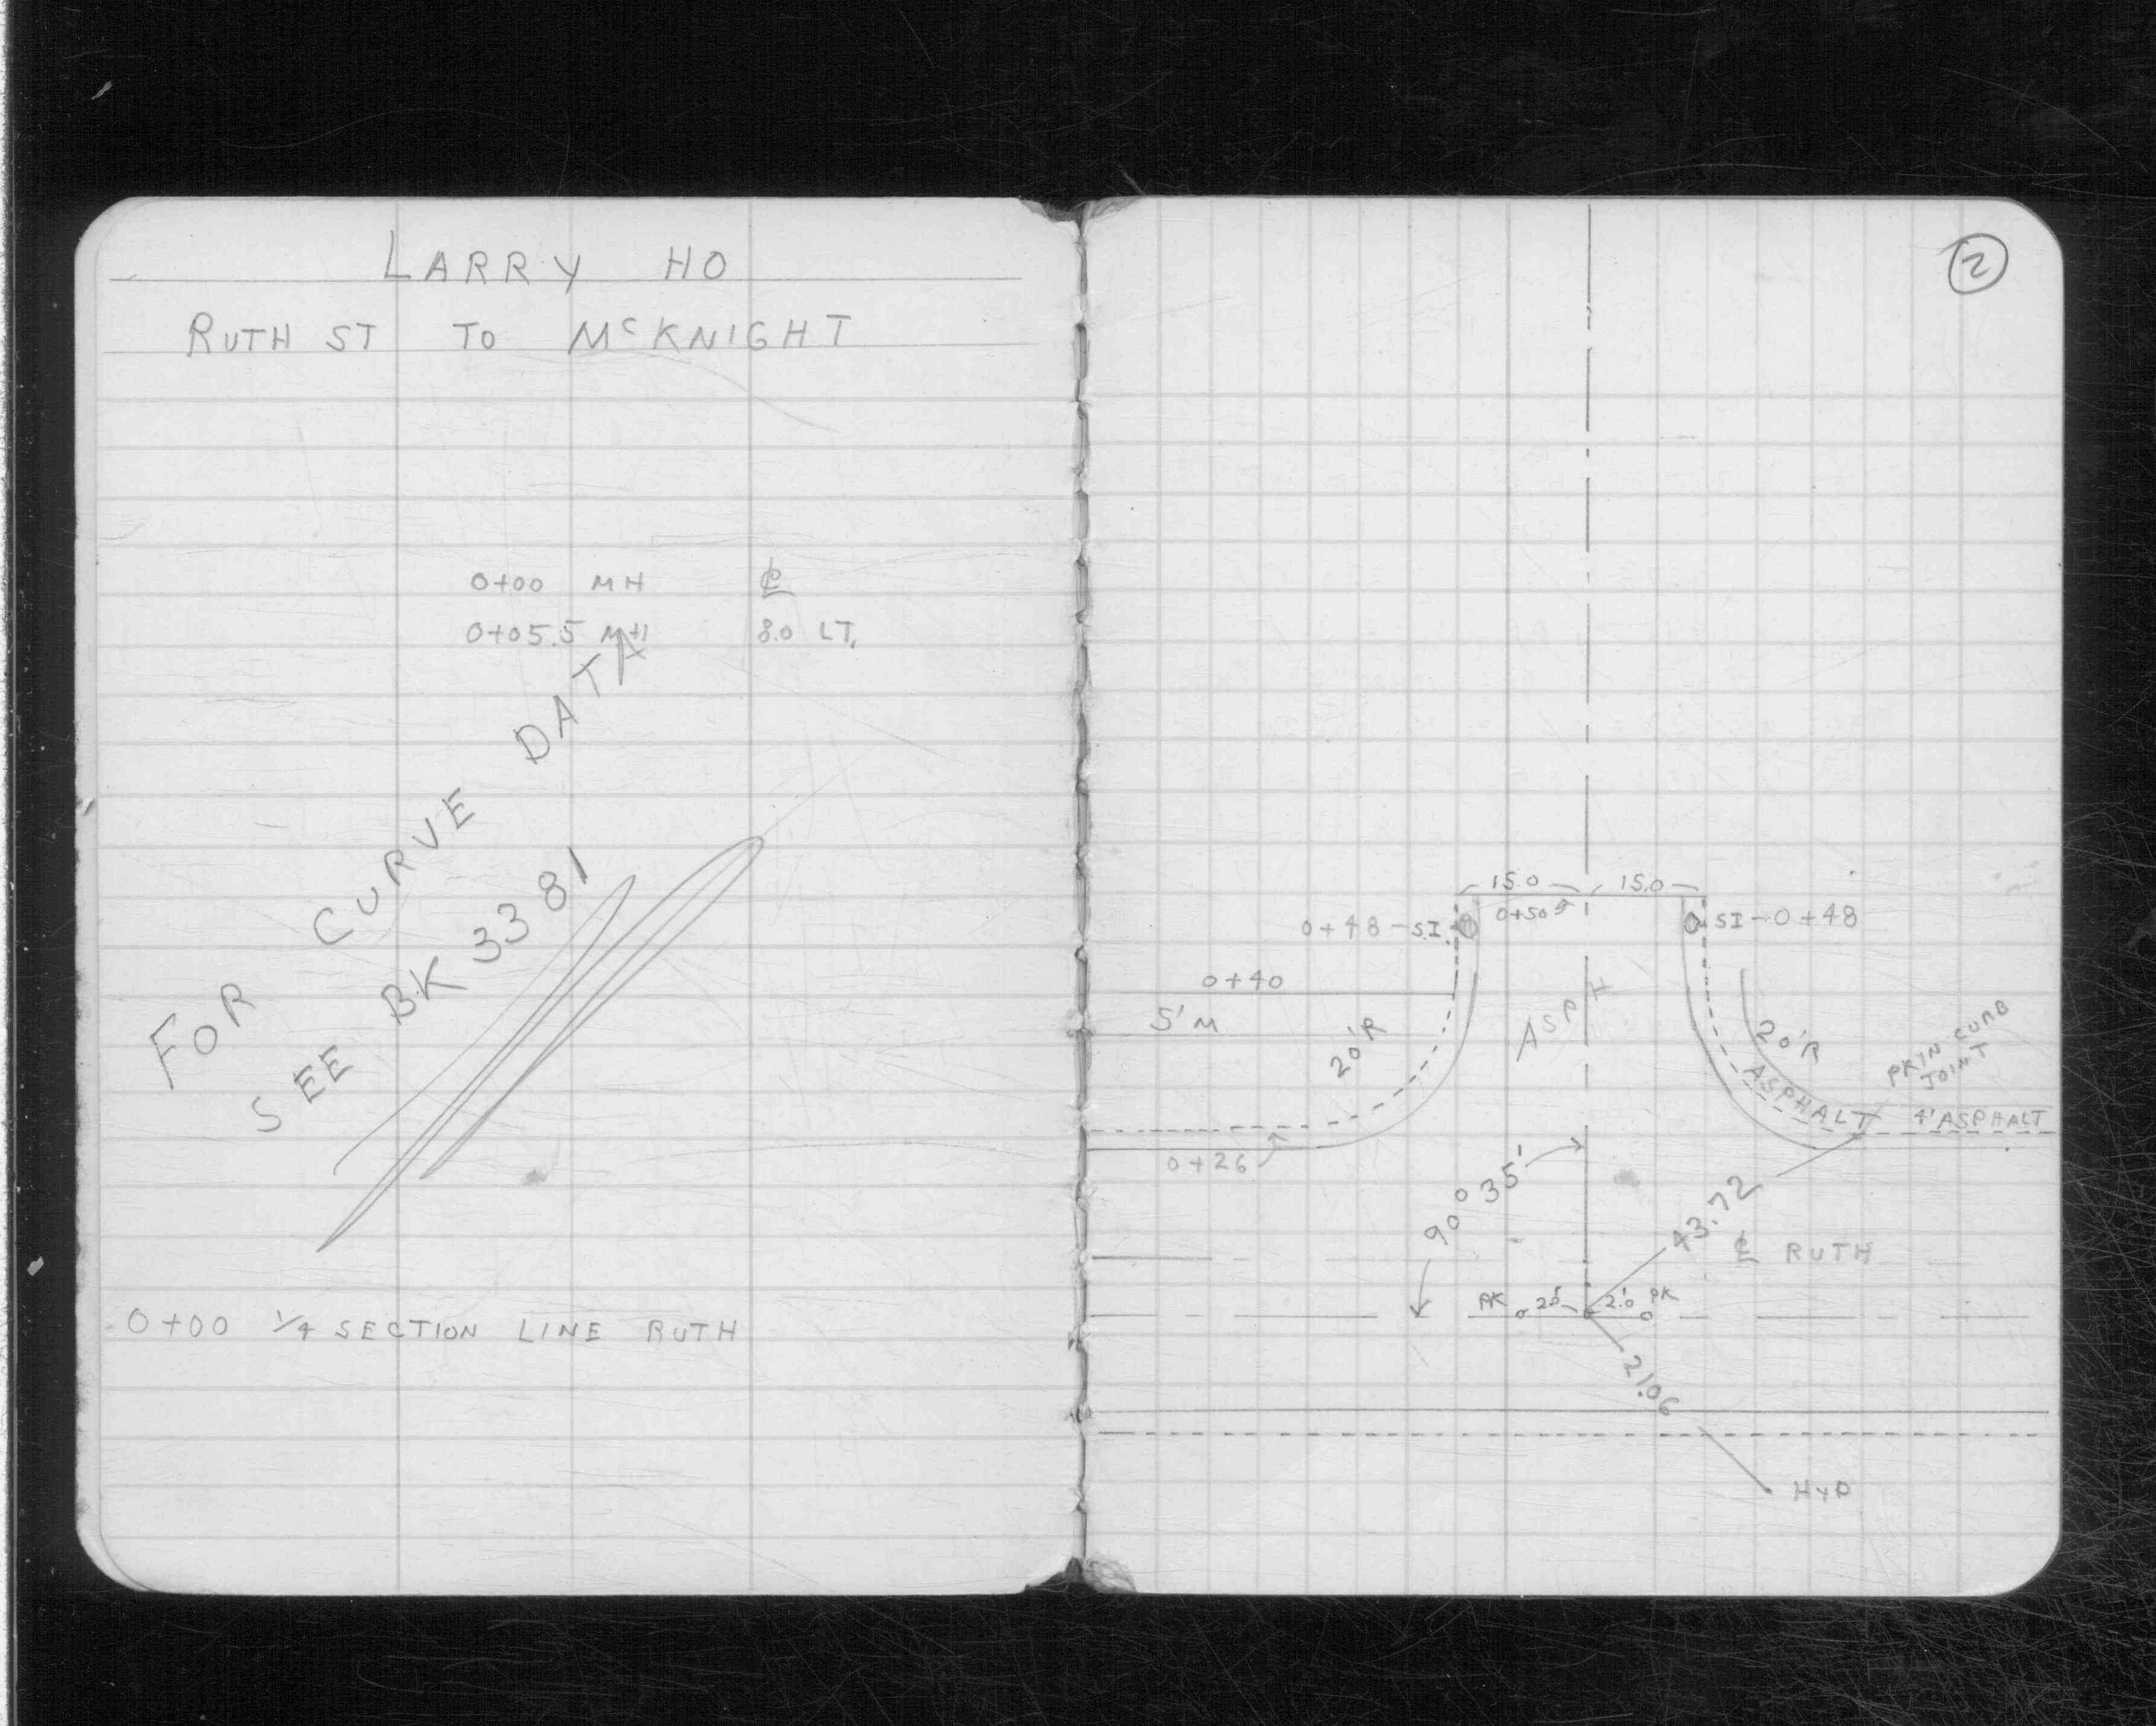 LARRY HO
RUTH ST TO McKNIGHT
0+00 MH ℄
0+05.5 MH 8.0 LT.
FOR CURVE DATA
SEE BK 3381
0+00 1/4 SECTION LINE RUTH
2
15.0 15.0
0+48-SI 0+50⁵ SI-0+48
0+40
5'M
20'R
ASPH
20'R
PK IN CURB
JOINT
ASPHALT
4' ASPHALT
0+26
90°35'
43.72
℄ RUTH
PK 2.0 2.0 PK
21.06
HYD